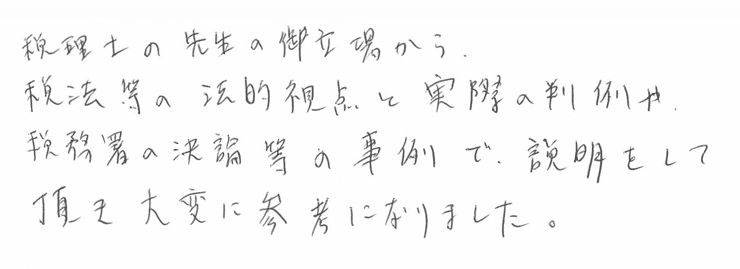 税理士の先生の御立場から、
税法等の法的視点と実際の判例や、
税務署の決論等の事例で、説明をして
頂き大変に参考になりました。